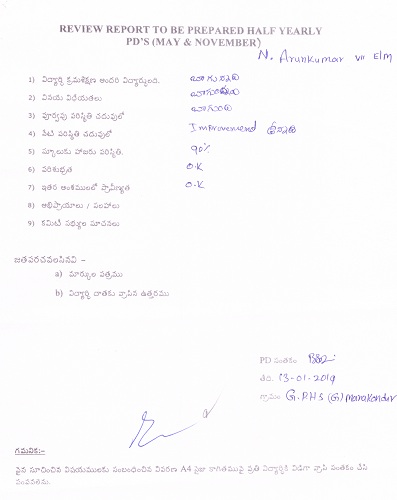 REVIEW REPORT TO BE PREPARED HALF YEARLY
PD'S (MAY & NOVEMBER)
N. Arunkumar VII E/m
1) విద్యార్థి క్రమశిక్షణ అందరి విద్యార్థులది. బాగున్నది
2) వినయ విధేయతలు బాగున్నవి
3) పూర్వపు పరిస్థితి చదువులో బాగుంది
4) నేటి పరిస్థితి చదువులో Improvemend ఉన్నది
5) స్కూలుకు హాజరు పరిస్థితి. 90%
6) పరిశుభ్రత O.K
7) ఇతర అంశములలో ప్రావీణ్యత O.K
8) అభిప్రాయాలు / సలహాలు
9) కమిటీ సభ్యుల సూచనలు
జతపరచవలసినవి –
a) మార్కుల పత్రము
b) విద్యార్థి దాతకు వ్రాసిన ఉత్తరము
PD సంతకం
తేది. 13-01-2019
గ్రామం G.P.H.S (G) Manakondur
గమనిక:-
పైన సూచించిన విషయములకు సంబంధించిన వివరణ A4 సైజు కాగితముపై ప్రతి విద్యార్థికి విడిగా వ్రాసి సంతకం చేసి
పంపవలెను.